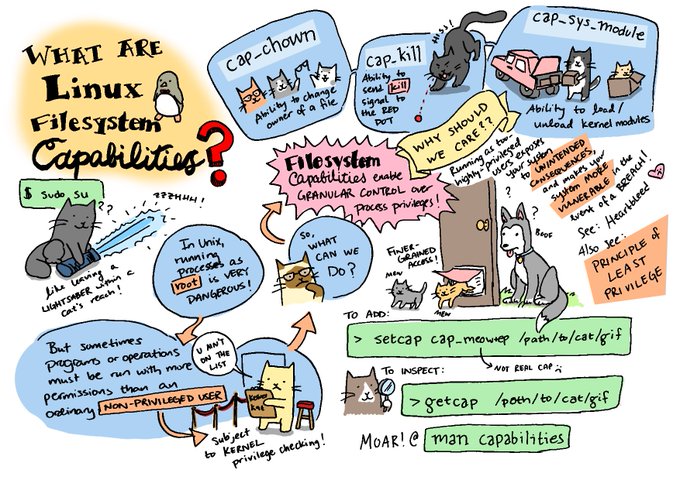 WHAT ARE
LINUX
FILESYSTEM
CAPABILITIES?
$ sudo su
zzzHHH!
??
like leaving a
LIGHTSABER within a
cat's reach!
In Unix,
running
processes as
root is VERY
DANGEROUS!
But sometimes
programs or operations
must be run with more
permissions than an
ordinary NON-PRIVILEGED USER
U AIN'T
ON THE
LIST
Subject
to KERNEL
privilege checking!
So,
WHAT
CAN WE
DO?
FILESYSTEM
CAPABILITIES ENABLE
GRANULAR CONTROL over
Process privileges!
cap_chown
Ability to change
owner of a file.
cap_kill
Ability to
send kill
signal to
the RED
DOT
HISS!
cap_sys_module
Ability to load/
unload kernel modules
WHY SHOULD
WE CARE??
Running as too-
highly-privileged
users exposes
your system
to UNINTENDED
CONSEQUENCES,
and makes your
system MORE
VULNERABLE in the
event of a BREACH!
See: Heartbleed
Also see:
PRINCIPLE of
LEAST
PRIVILEGE
FINER-
GRAINED
ACCESS!
MEW
MEW
?
?
BOOF
TO ADD:
> setcap cap_meow+ep /path/to/cat/gif
NOT REAL CAP
TO INSPECT:
> getcap /path/to/cat/gif
MOAR! @ man capabilities